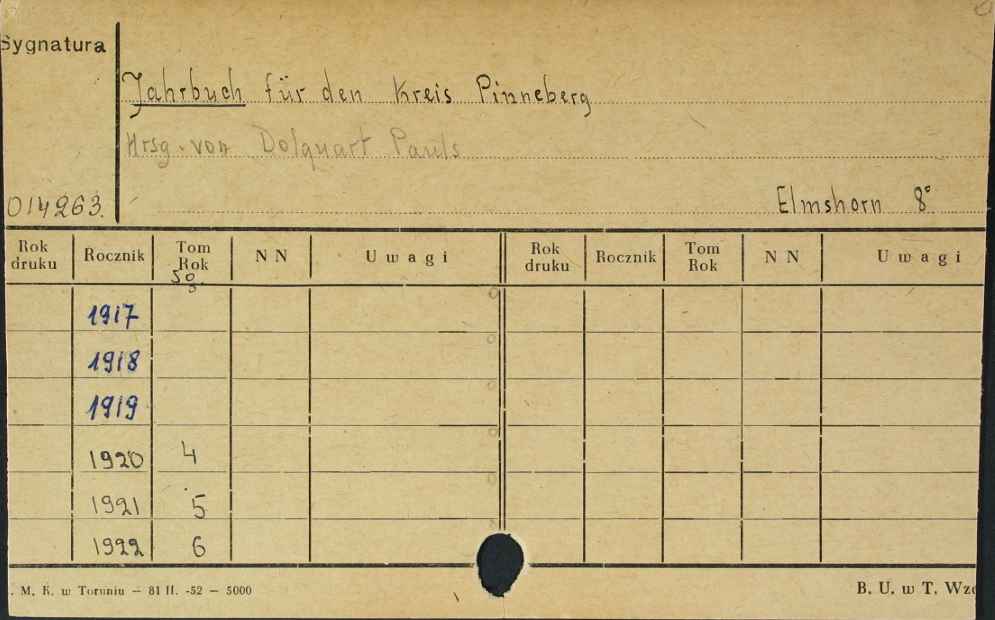 Sygnatura
Jahrbuch für den Kreis Pinneberg
Hrsg. von Dolquart Pauls
014263.
Elmshorn 8°
Rok druku Rocznik Tom Rok N N Uwagi Rok druku Rocznik Tom Rok N N Uwagi
1917
1918
1919
1920 4
1921 5
1922 6
. M. K. w Toruniu – 81 II. -52 – 5000
B. U. w T.